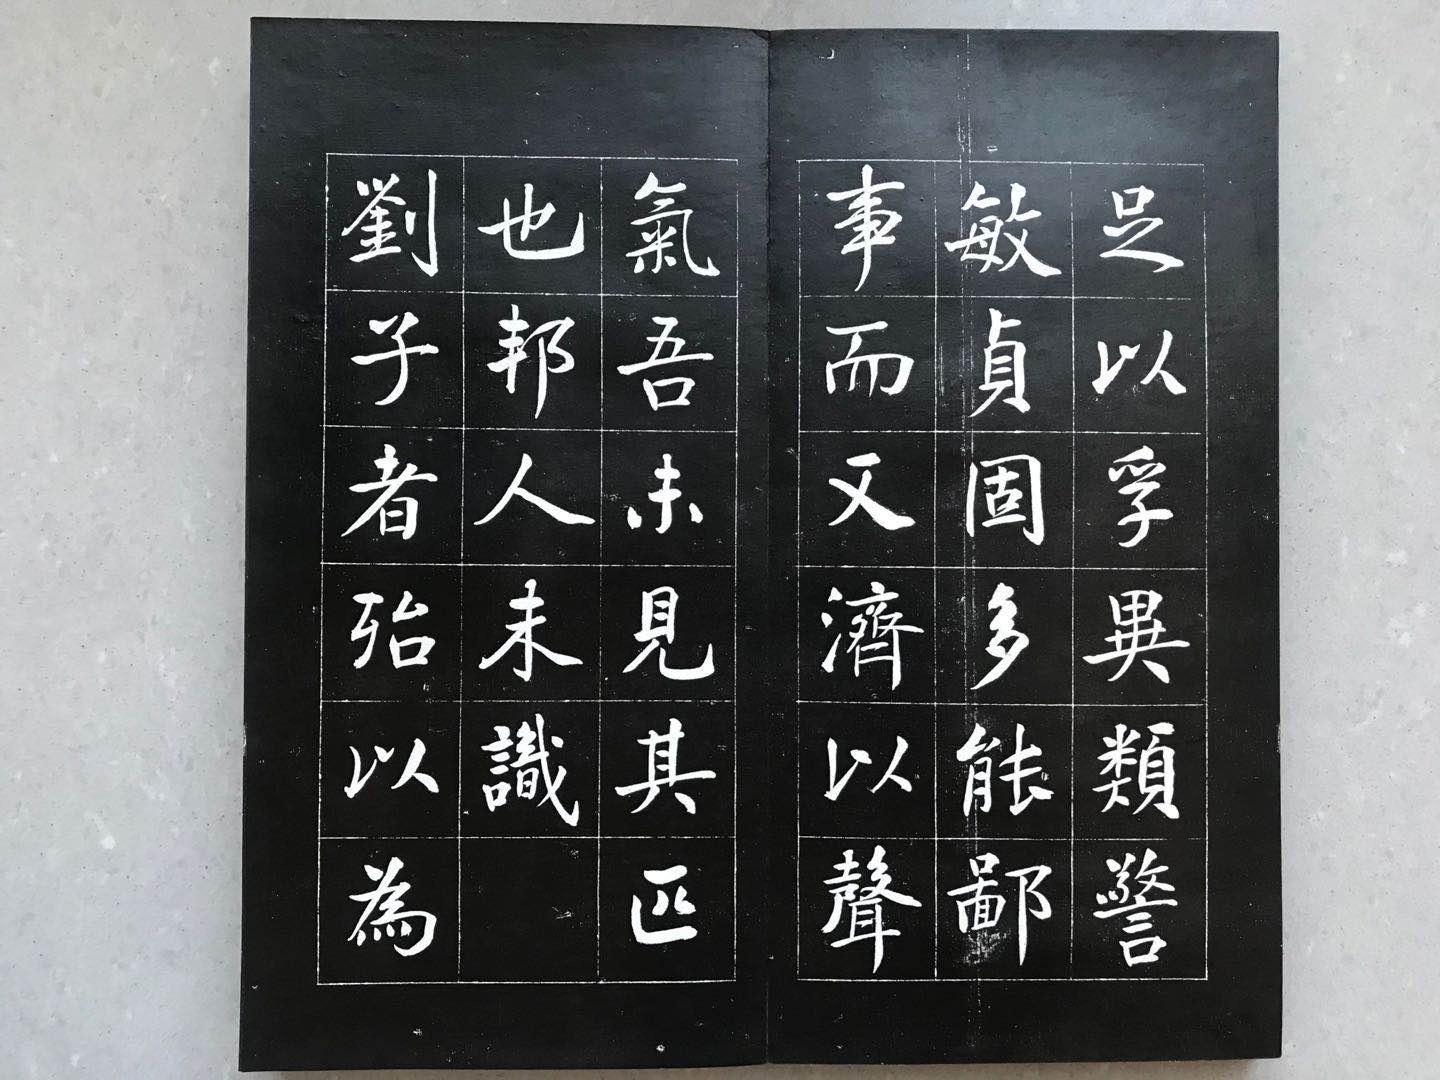 足以孚異類警
敏貞固多能鄙
事而又濟以聲
氣吾未見其匹
也邦人未識
劉子者殆以為